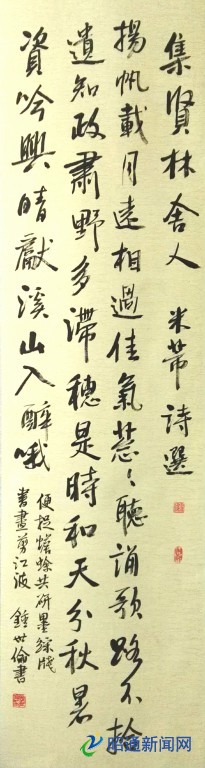 集賢林舍人 米芾詩選
揚帆載月遠相過佳氣葱〻聽誦歌路不拾
遺知政肅野多滯穗是時和天分秋暑
資吟興晴獻溪山入醉哦
便捉蟾蜍共研墨綵牋
書畫剪江波 鍾世倫書
昭通新闻网